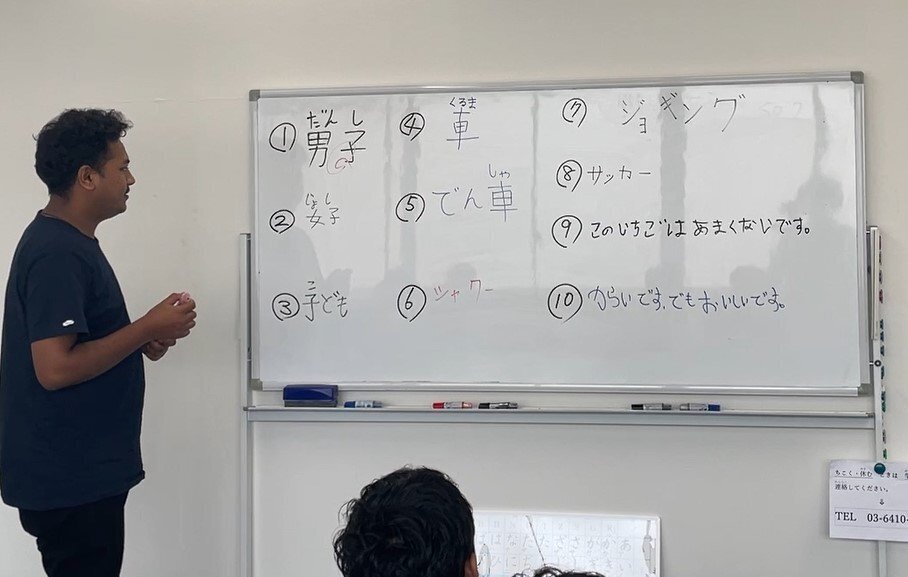 ① だんし
男子
② じょし
女子
③ こ
子ども
④ くるま
車
⑤ しゃ
でん車
⑥ シャワー
⑦ ジョギング
⑧ サッカー
⑨ このいちごは あまくないです。
⑩ からいです、でもおいしいです。
ちこく・休む ときは
連絡してください。
⇓
TEL 03-6410-